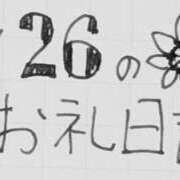 26の
お礼日